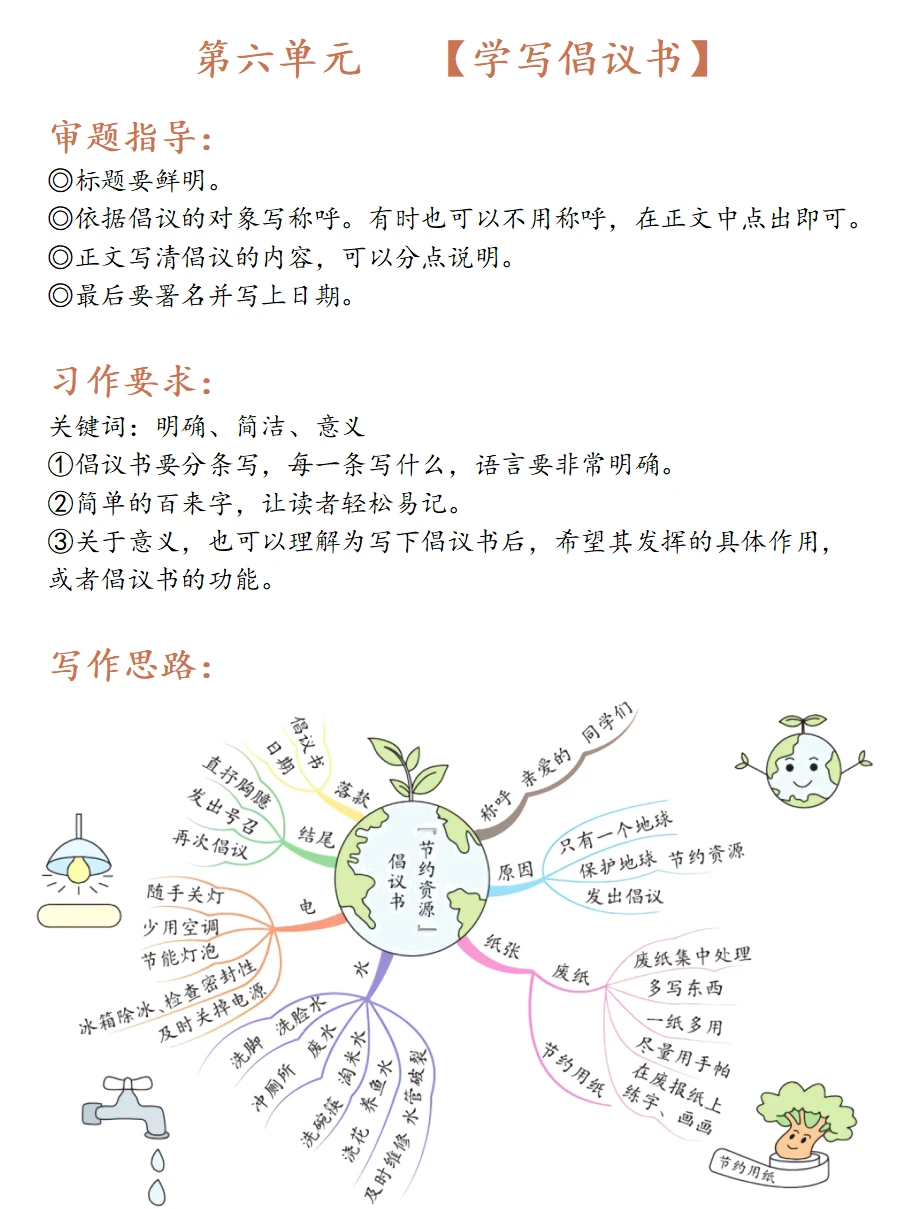 第六单元 【学写倡议书】
审题指导：
◎标题要鲜明。
◎依据倡议的对象写称呼。有时也可以不用称呼，在正文中点出即可。
◎正文写清倡议的内容，可以分点说明。
◎最后要署名并写上日期。
习作要求：
关键词：明确、简洁、意义
①倡议书要分条写，每一条写什么，语言要非常明确。
②简单的百来字，让读者轻松易记。
③关于意义，也可以理解为写下倡议书后，希望其发挥的具体作用，
或者倡议书的功能。
写作思路：
『节约资源』
倡议书
称呼
亲爱的 同学们
原因
只有一个地球
保护地球 节约资源
发出倡议
纸张
废纸
废纸集中处理
多写东西
一纸多用
尽量用手帕
在废报纸上
练字、画画
节约用纸
水
洗脸水
洗脚
废水
冲厕所
淘米水
洗碗筷
养鱼水
浇花
水管破裂
及时维修
电
随手关灯
少用空调
节能灯泡
冰箱除冰、检查密封性
及时关掉电源
结尾
直抒胸臆
发出号召
再次倡议
落款
倡议书
日期
节约用纸